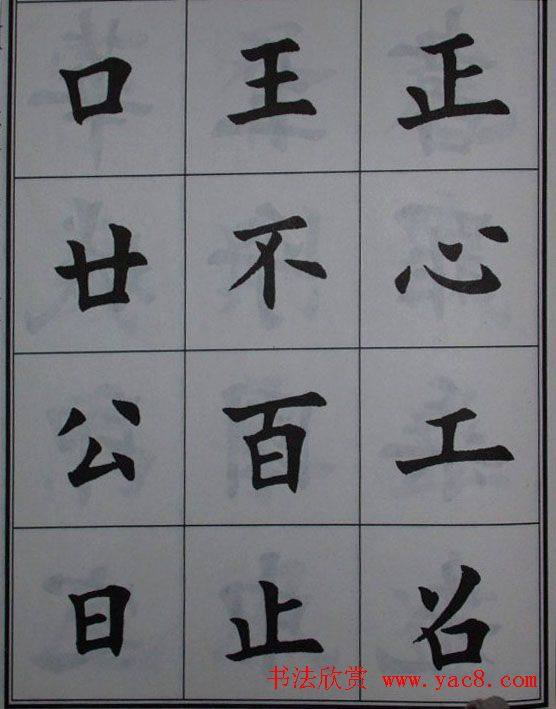 正心工召
王不百止
口廿公日
书法欣赏 www.yac8.com